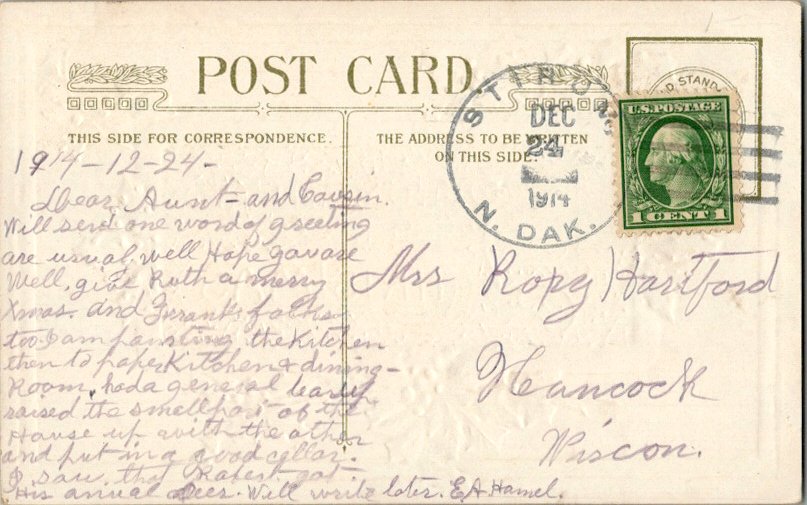 POST CARD
THIS SIDE FOR CORRESPONDENCE.
THE ADDRESS TO BE WRITTEN
ON THIS SIDE.
STIRUM
DEC
24
1914
N. DAK.
D STAND
U.S. POSTAGE
1 CENT 1
1914-12-24-
Dear Aunt- and Cousin.
Will send one word of greeting
are usual well Hope you are
Well, give Ruth a merry
Xmas. and Frank's folks
too I am painting the Kitchen
then to paper Kitchen & dining-
Room, had a general
raised the small part of the
House up with the other
and put in a good cellar.
I saw that Robert got
His anual Deer. Will write later. E.A. Hamel.
Mrs Hartford
Hancock
Wiscon.